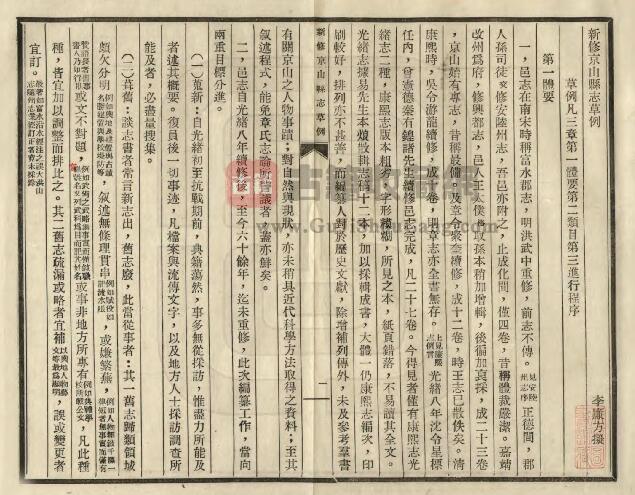 新修京山縣志草例
草例凡三章第一體要第二類目第三進行程序
李廉方擬
第一體要
一，邑志在南宋時稱富水郡志，明洪武中重修，前志不傳。見安陸州志序正德間，郡
人孫司徒交修安陸州志，吾邑亦附之，止成化間，僅四卷，昔稱體裁嚴潔。嘉靖
改州爲府，修興都志，邑人王太僕格取孫本稍加增輯，後徧加裒採，成二十三卷
，京山始有專志，昔稱最備。及章令聚奎續修，成十二卷，時王志已散佚矣。清
康熙時，吳令游龍續修，成十卷，明章志亦全書無存。上見康熙志例言光緒八年沈令星標
任內，曾憲德秦有鍠諸先生續修邑志完成，凡二十七卷。今得見者僅有康熙志光
緒志二種，康熙志版本粗劣，字形模糊，所見之本，紙頁錯落，不易讀其全文。
光緒志據易先生本烺散輯志稿十二本，加以採輯成書，大體一仍康熙志編次，印
刷較好，排列亦不甚善，而編纂人對於歷史文獻，除增補列傳外，未及參考羣書
新修京山縣志草例
一
有關京山之人物事蹟；對自然與現狀，亦未稍具近代科學方法取得之資料；至其
叙述程式，能免章氏志論所譏議者，蓋亦鮮矣。
二，邑志自光緒八年續修後，至今六十餘年，迄未重修，此次編纂工作，當向
兩重目標分進。
（一）蒐新：自光緒初至抗戰期前，典籍蕩然，事多無從採訪，惟盡力所能及
者述其概要。復員後一切事迹，凡檔案與流傳文字，以及地方人士採訪調查所
能及者，必盡量搜集。
（二）葺舊：談志書者常言新志出，舊志廢，此當從事者：其一舊志歸類領域
頗欠分明，叙述無條理貫串，或嫌繁蕪，
或文不對題，或事非地方所專有，凡此種
種，皆宜加以調整而排比之。其二舊志疏漏或略者宜補，誤或變更者
宜訂。